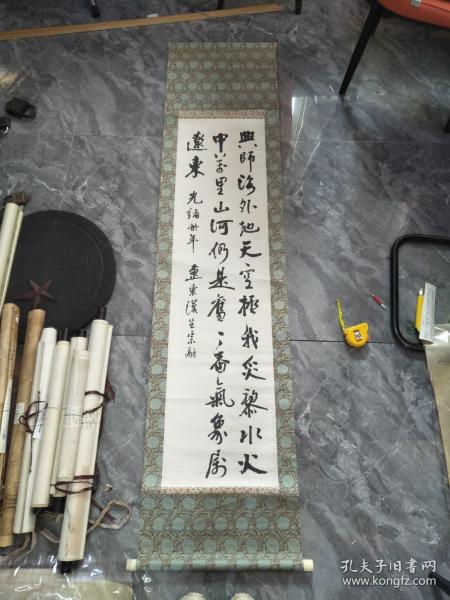 興師海外地天空拯我災黎水火
中萬里山河仍是舊一番氣象屬
遼東 光緒卅年 遼東漢生宗融
孔夫子旧书网
www.kongfz.com